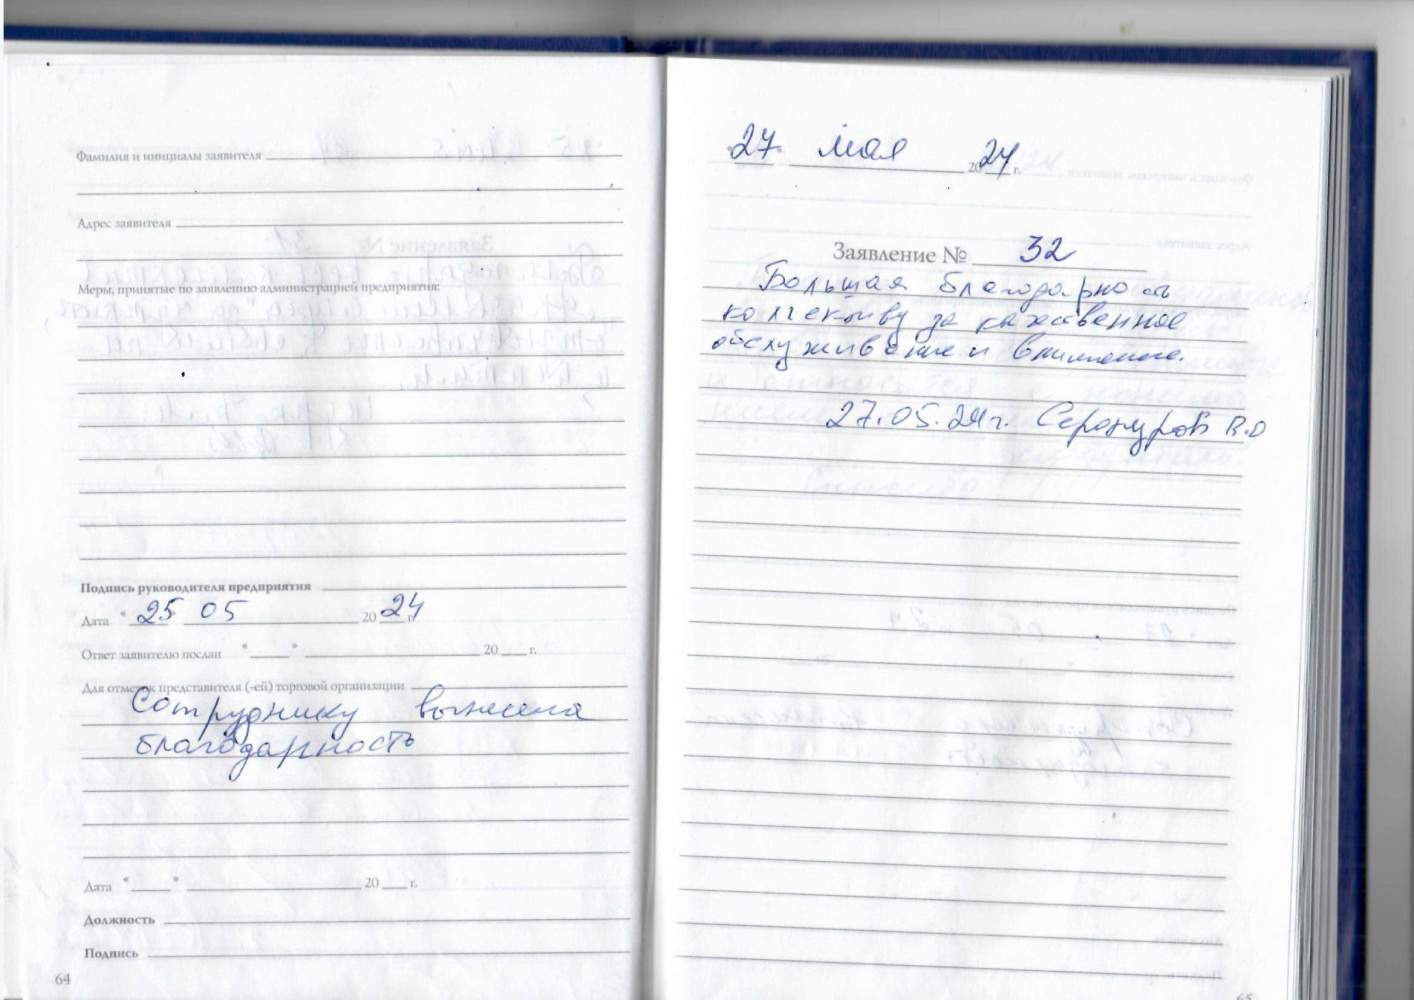 Фамилия и инициалы заявителя
Адрес заявителя
Меры, принятые по заявлению администрацией предприятия:
Подпись руководителя предприятия
Дата " 25 05 20 24 г.
Ответ заявителю послан " " 20 г.
Для отметок представителя (-ей) торговой организации
Сотруднику вынесена
благодарность
Дата " " 20 г.
Должность
Подпись
64
"27" мая 2024 г.
Заявление № 32
Большая благодарность
коллективу за качественное
обслуживание и внимание.
27.05.24г. В.О
65